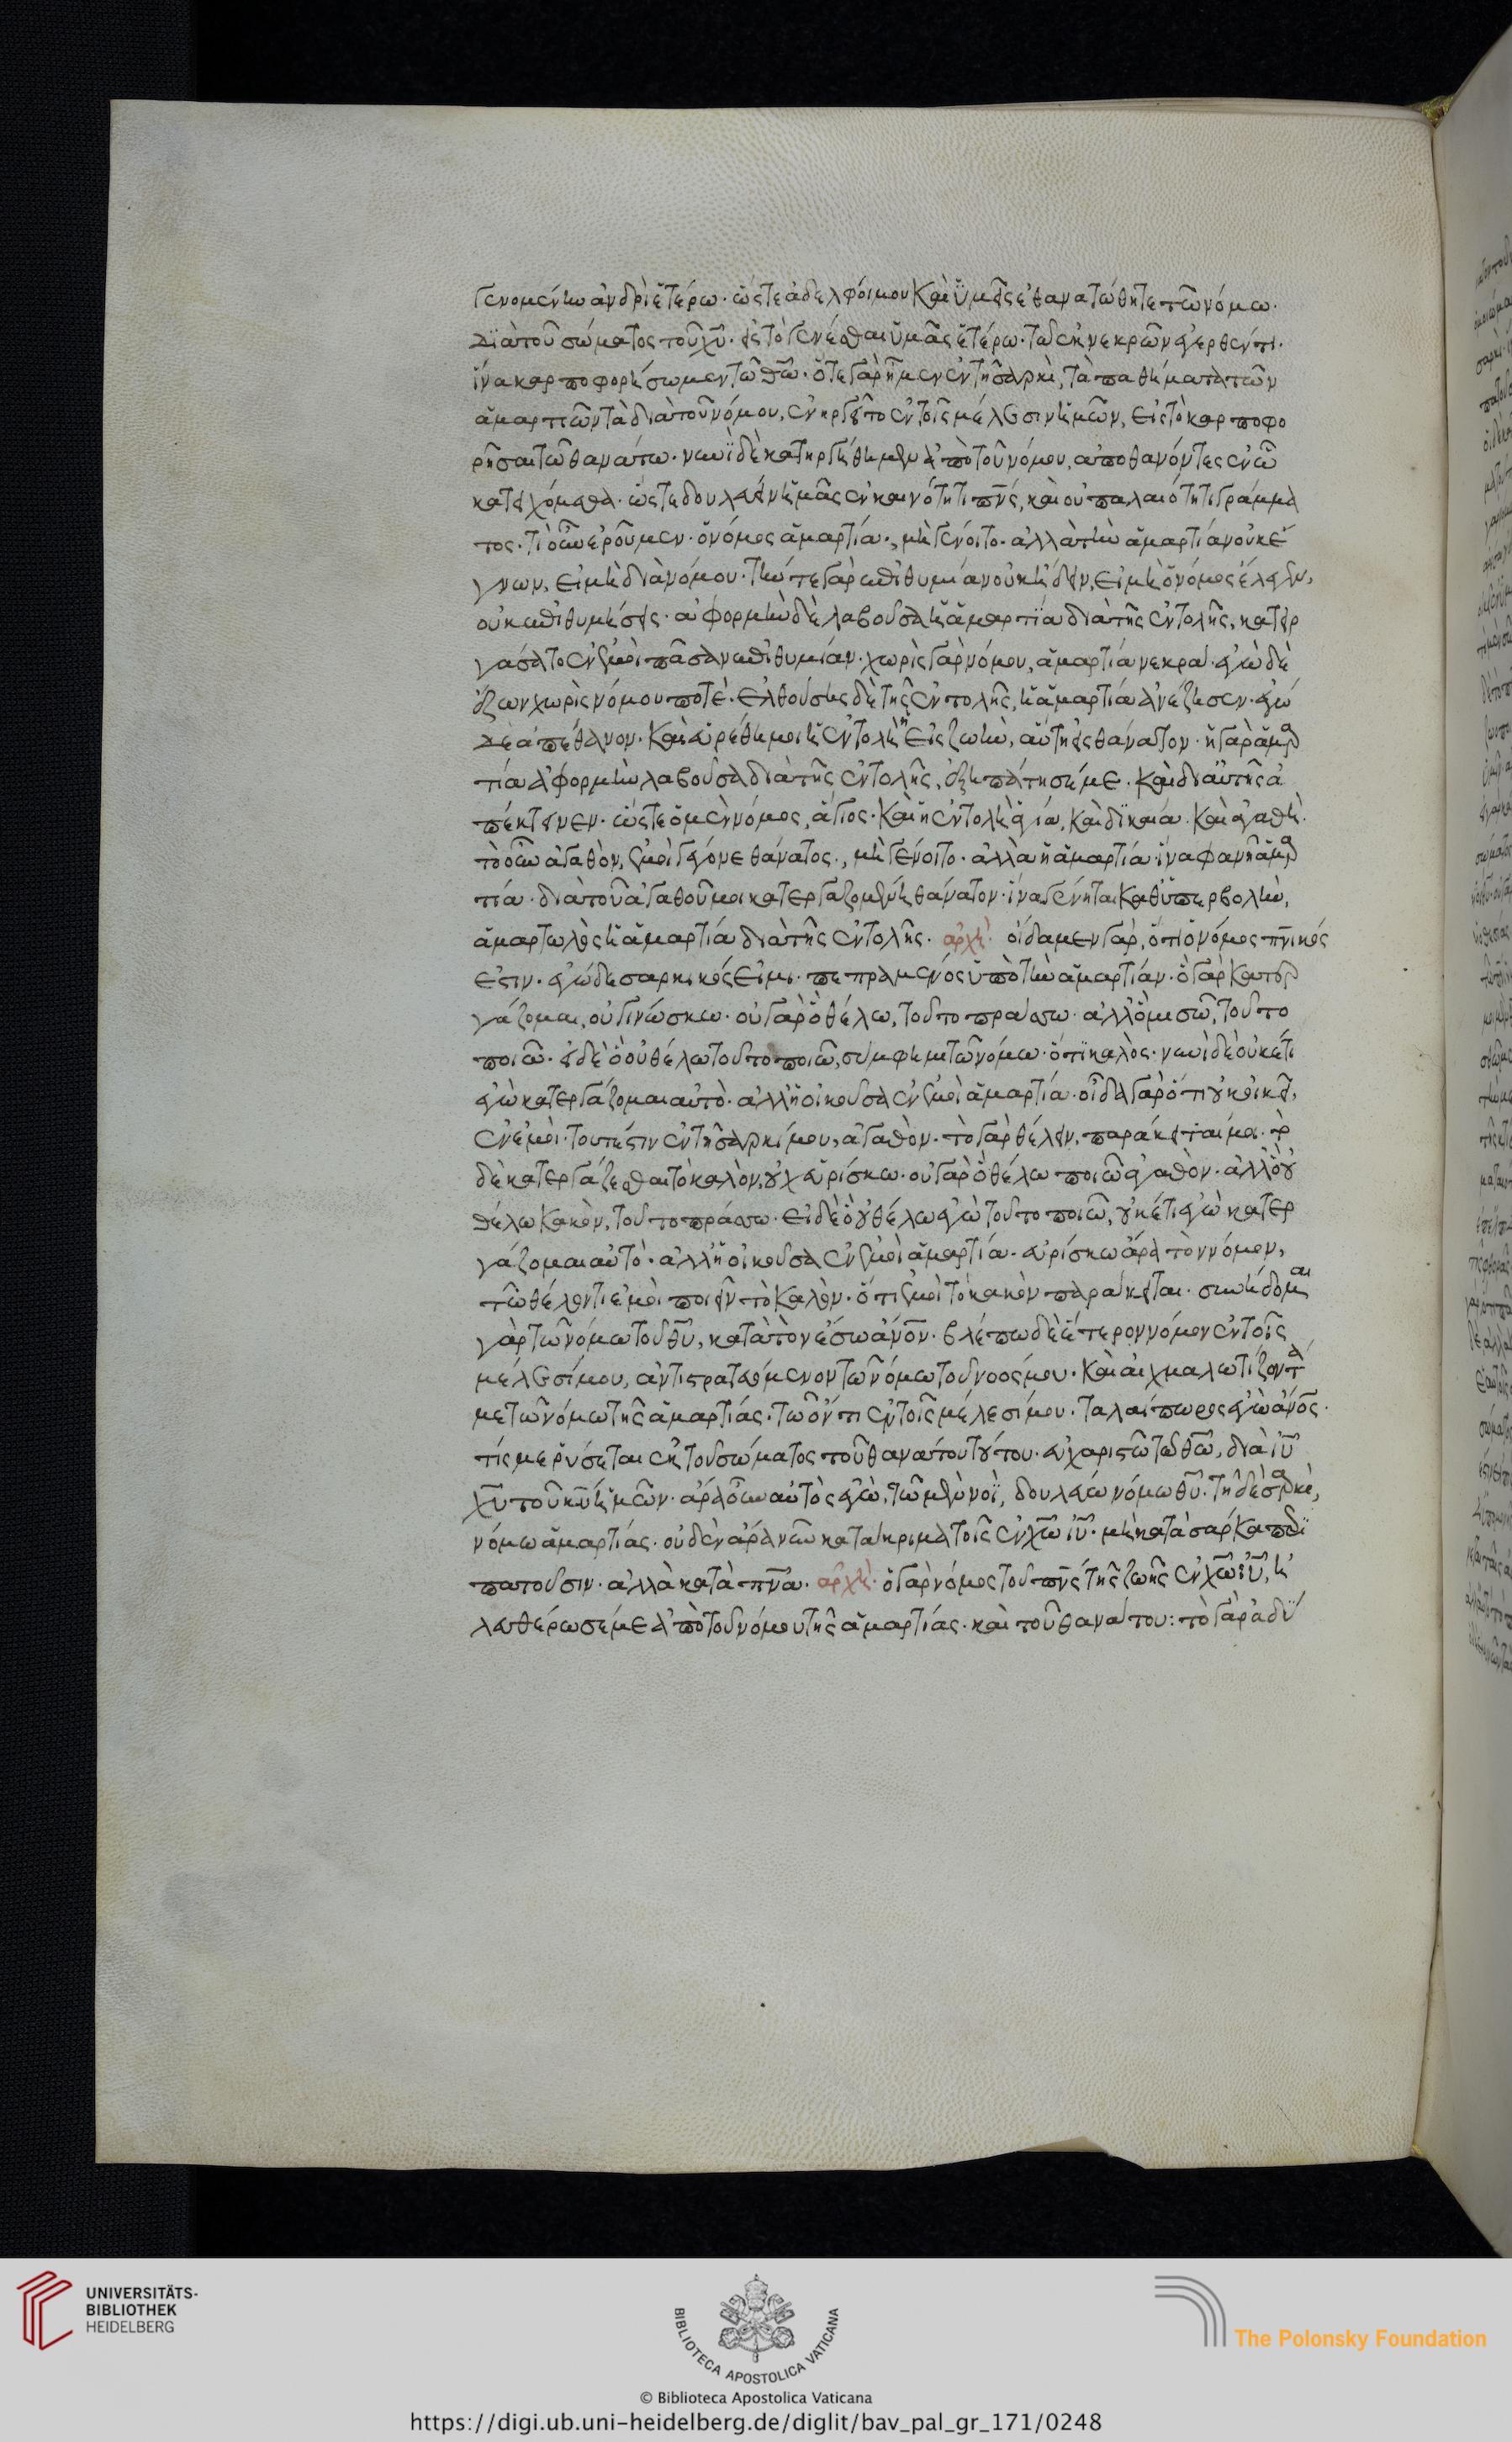 γενομένην ἀνδρὶ ἑτέρω· ὥστε ἀδελφοί μου καὶ ὑμεῖς ἐθανατώθητε τῶ νόμω·
διὰ τοῦ σώματος τοῦ χυ· εἰς τὸ γενέσθαι ὑμᾶς ἑτέρω· τῶ ἐκ νεκρῶν ἐγερθέντι·
ἵνα καρποφορήσωμεν τῶ θω· ὅτε γὰρ ἦμεν ἐν τῆ σαρκὶ, τὰ παθήματα τῶν
ἁμαρτιῶν τὰ διὰ τοῦ νόμου, ἐνηργεῖτο ἐν τοῖς μέλεσιν ἡμῶν, εἰς τὸ καρποφο
ρῆσαι τῶ θανάτω· νυνὶ δὲ κατηργήθημεν ἀπὸ τοῦ νόμου, ἀποθανόντες ἐν ὧ
κατειχόμεθα· ὥστε δουλεύειν ἡμᾶς ἐν καινότητι πνς, καὶ οὐ παλαιότητι γράμμα
τος· τί οὖν ἐροῦμεν· ὁ νόμος ἁμαρτία·, μὴ γένοιτο· ἀλλὰ τὴν ἁμαρτίαν οὐκ ἔ
γνων, εἰ μὴ διὰ νόμου· τήν τε γὰρ ἐπιθυμίαν οὐκ ἤδειν, εἰ μὴ ὁ νόμος ἔλεγεν,
οὐκ ἐπιθυμήσεις· ἀφορμὴν δὲ λαβοῦσα ἡ ἁμαρτία διὰ τῆς ἐντολῆς, κατειρ
γάσατο ἐν ἐμοὶ πᾶσαν ἐπιθυμίαν· χωρὶς γὰρ νόμου, ἁμαρτία νεκρά· ἐγὼ δὲ
ἔζων χωρὶς νόμου ποτέ· ἐλθούσης δὲ τῆς ἐντολῆς, ἡ ἁμαρτία ἀνέζησεν· ἐγώ
δὲ ἀπέθανον· καὶ εὑρέθη μοι ἡ ἐντολὴ ἡ εἰς ζωὴν, αὕτη εἰς θάνατον· ἡ γὰρ ἁμαρ
τία ἀφορμὴν λαβοῦσα διὰ τῆς ἐντολῆς, ἐξηπάτησέ με· καὶ δι αὐτῆς ἀ
πέκτεινεν· ὥστε ὁ μὲν νόμος, ἅγιος· καὶ ἡ ἐντολὴ ἁγία, καὶ δικαία· καὶ ἀγαθή·
τὸ οὖν ἀγαθὸν, ἐμοὶ γέγονε θάνατος·, μὴ γένοιτο· ἀλλὰ ἡ ἁμαρτία· ἵνα φανῆ ἁμαρ
τία· διὰ τοῦ ἀγαθοῦ μοι κατεργαζομένη θάνατον· ἵνα γένηται καθ ὑπερβολὴν,
ἁμαρτωλὸς ἡ ἁμαρτία διὰ τῆς ἐντολῆς· ἀρχή· οἴδαμεν γὰρ, ὅτι ὁ νόμος πνικός
ἐστιν· ἐγὼ δὲ σαρκικός εἰμι· πεπραμένος ὑπὸ τὴν ἁμαρτίαν· ὃ γὰρ κατερ
γάζομαι, οὐ γινώσκω· οὐ γὰρ ὃ θέλω, τοῦτο πράσσω· ἀλλ ὃ μισῶ, τοῦτο
ποιῶ· εἰ δὲ ὃ οὐ θέλω τοῦτο ποιῶ, σύμφημι τῶ νόμω· ὅτι καλὸς· νυνὶ δὲ οὐκέτι
ἐγὼ κατεργάζομαι αὐτὸ· ἀλλ ἡ οἰκοῦσα ἐν ἐμοὶ ἁμαρτία· οἶδα γὰρ ὅτι οὐκ οἰκεῖ,
ἐν ἐμοὶ· τουτέστιν ἐν τῆ σαρκί μου, ἀγαθὸν· τὸ γὰρ θέλειν, παράκειταί μοι· τὸ
δὲ κατεργάζεσθαι τὸ καλὸν, οὐχ εὑρίσκω· οὐ γὰρ ὃ θέλω ποιῶ ἀγαθὸν· ἀλλ ὃ οὐ
θέλω κακὸν, τοῦτο πράσσω· εἰ δὲ ὃ οὐ θέλω ἐγὼ τοῦτο ποιῶ, οὐκέτι ἐγὼ κατερ
γάζομαι αὐτὸ· ἀλλ ἡ οἰκοῦσα ἐν ἐμοὶ ἁμαρτία· εὑρίσκω ἄρα τὸν νόμον,
τῶ θέλοντι ἐμοὶ ποιεῖν τὸ καλὸν· ὅτι ἐμοὶ τὸ κακὸν παράκειται· συνήδομαι
γὰρ τῶ νόμω τοῦ θυ, κατὰ τὸν ἔσω ἀνον· βλέπω δὲ ἕτερον νόμον ἐν τοῖς
μέλεσί μου, ἀντιστρατευόμενον τῶ νόμω τοῦ νοός μου· καὶ αἰχμαλωτίζοντά
με τῶ νόμω τῆς ἁμαρτίας· τῶ ὄντι ἐν τοῖς μέλεσί μου· ταλαίπωρος ἐγὼ ἀνος·
τίς με ῥύσεται ἐκ τοῦ σώματος τοῦ θανάτου τούτου· εὐχαριστῶ τῶ θω, διὰ ιυ
χυ τοῦ κυ ἡμῶν· ἄρα οὖν αὐτὸς ἐγὼ, τῶ μὲν νοῒ, δουλεύω νόμω θυ· τῆ δὲ σαρκὶ,
νόμω ἁμαρτίας· οὐδὲν ἄρα νῦν κατάκριμα τοῖς ἐν χω ιυ· μὴ κατὰ σάρκα περι
πατοῦσιν· ἀλλὰ κατὰ πνα· ἀρχή· ὁ γὰρ νόμος τοῦ πνς τῆς ζωῆς ἐν χω ιυ, ἠ
λευθέρωσέ με ἀπὸ τοῦ νόμου τῆς ἁμαρτίας· καὶ τοῦ θανάτου: τὸ γὰρ ἀδύ
UNIVERSITÄTS-
BIBLIOTHEK
HEIDELBERG
BIBLIOTECA APOSTOLICA VATICANA
© Biblioteca Apostolica Vaticana
The Polonsky Foundation
https://digi.ub.uni-heidelberg.de/diglit/bav_pal_gr_171/0248